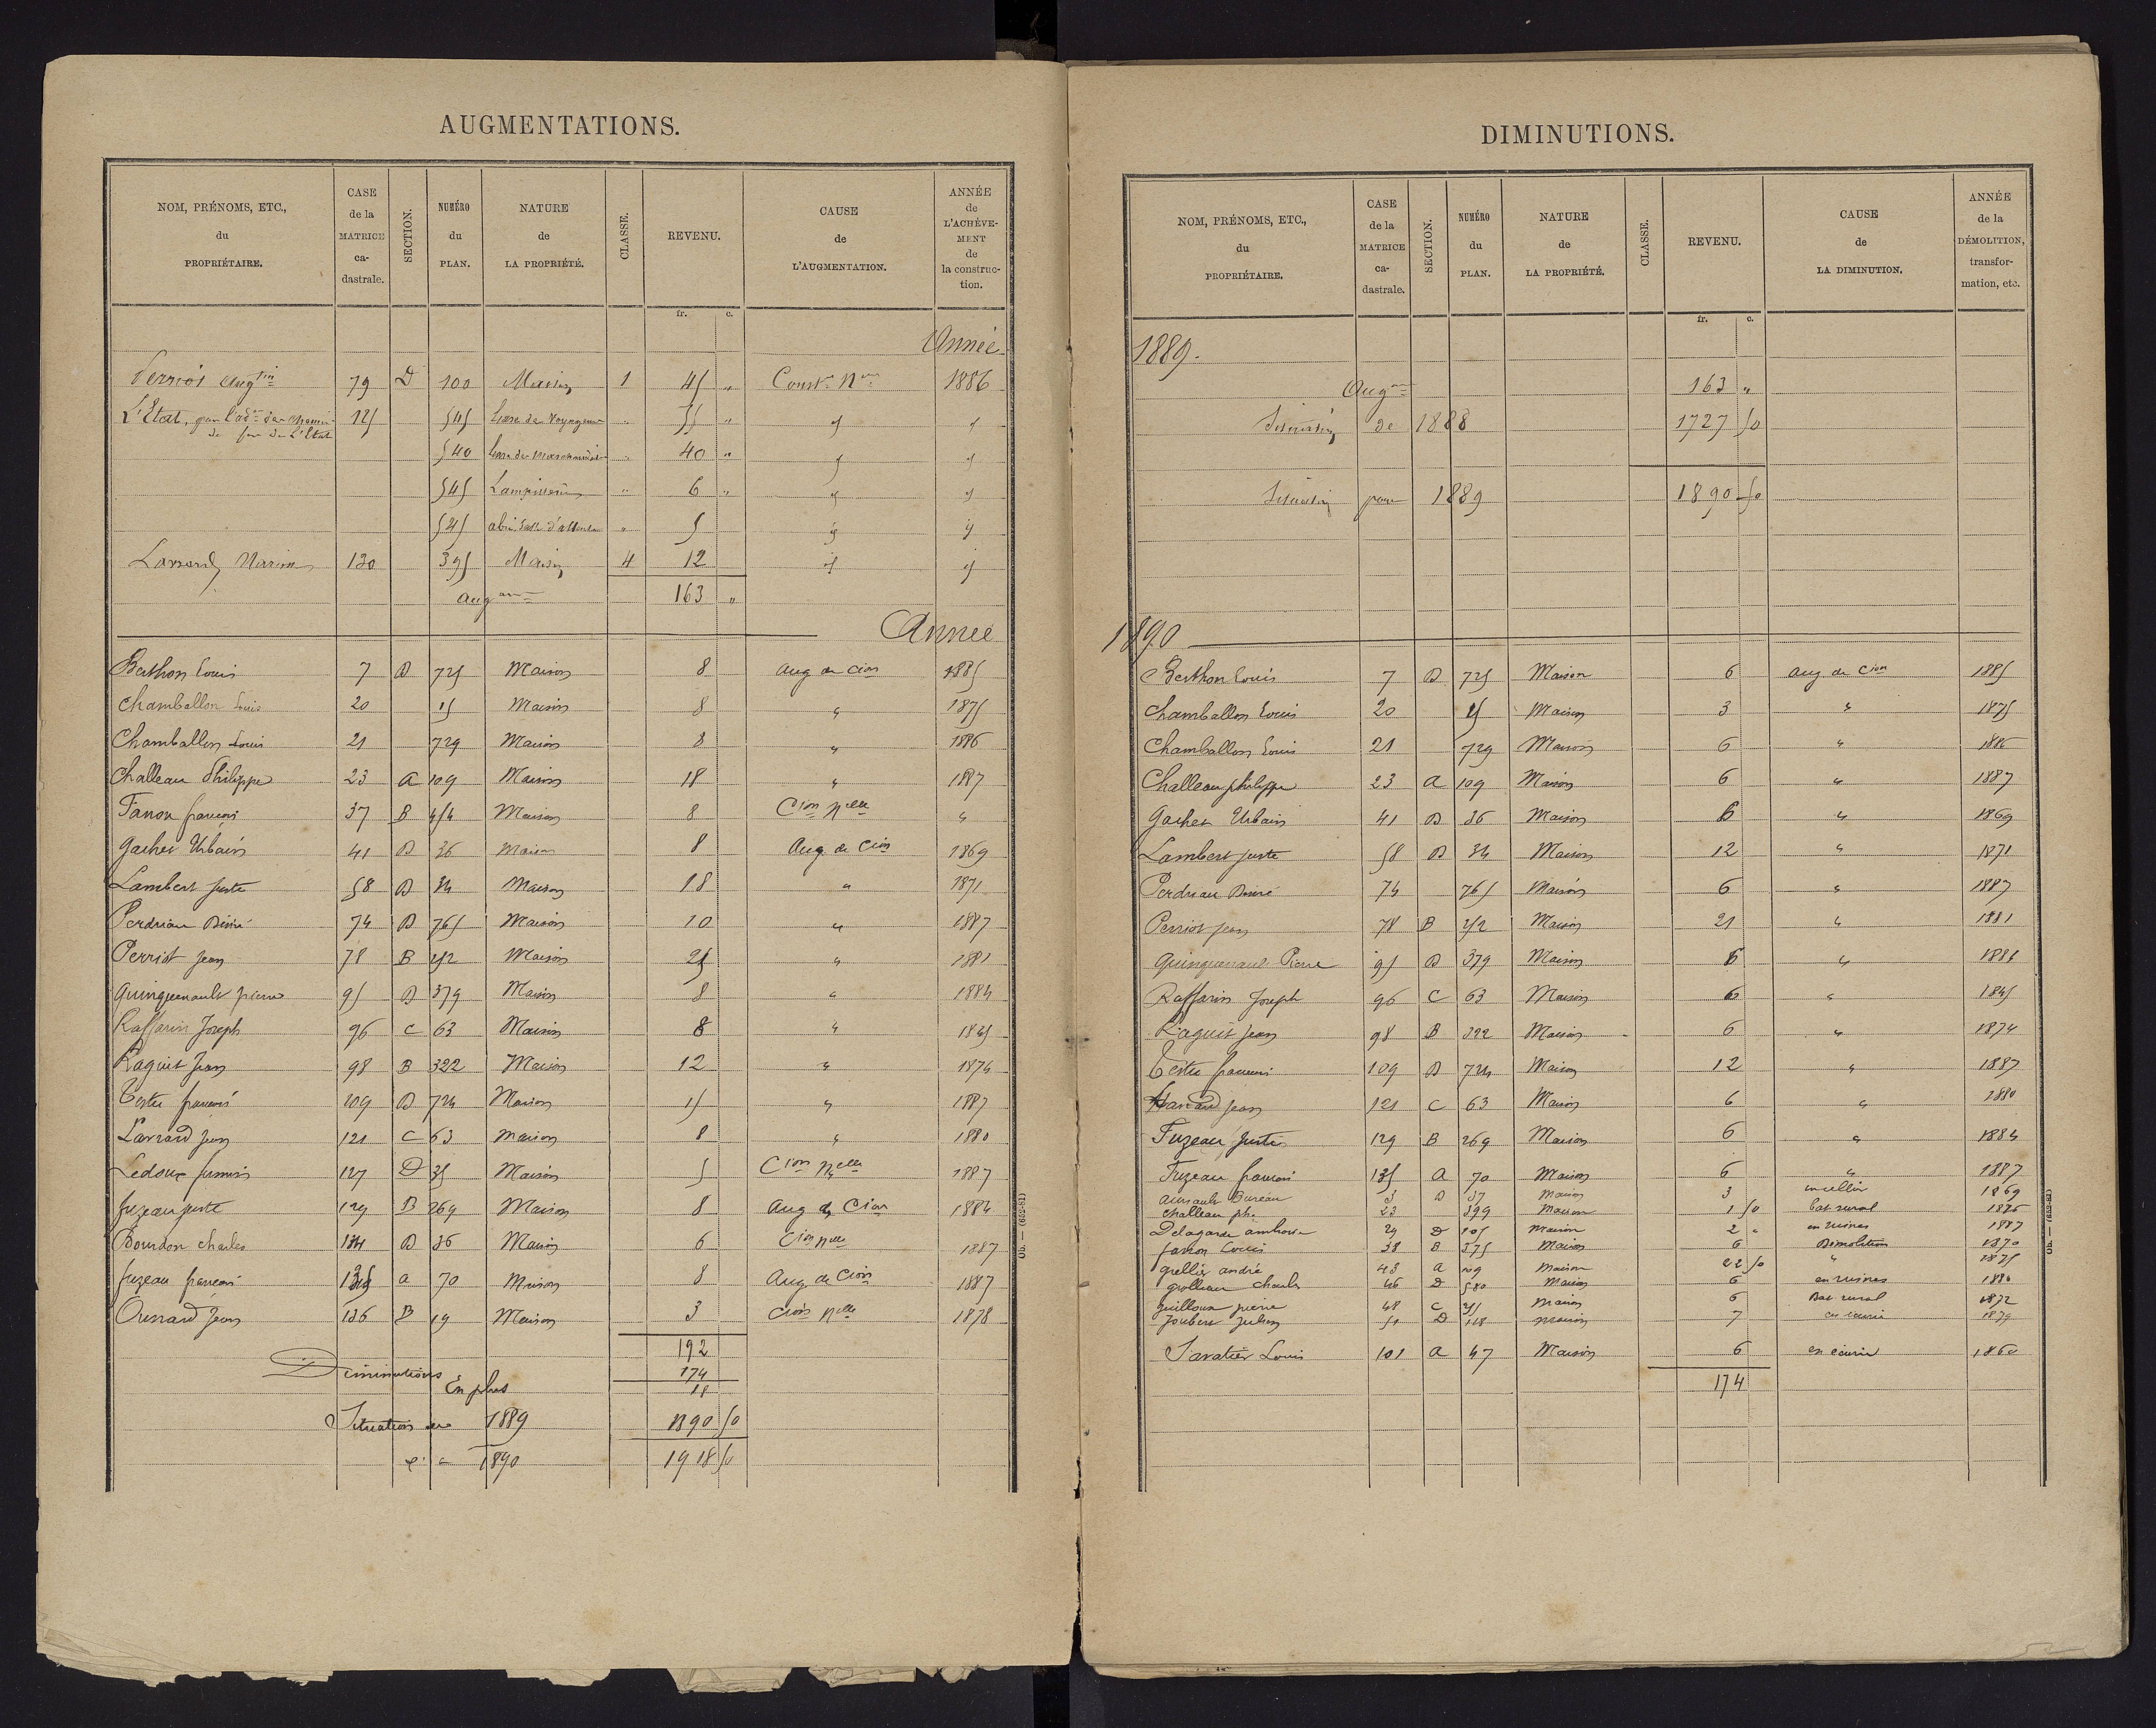 AUGMENTATIONS.
NOM, PRÉNOMS, ETC., du PROPRIÉTAIRE. CASE de la MATRICE ca- dastrale. SECTION. NUMÉRO du PLAN. NATURE de LA PROPRIÉTÉ. CLASSE. REVENU. CAUSE de L'AUGMENTATION. ANNÉE de L'ACHÈVE- MENT de la construc- tion.
fr. c.
Année
79 D 100 Maison 1 45 " Constr. 1886
L'Etat, par l'ad.on des chemins 125 545 de Voyageurs " 55 "
de fer de L'Etat
540 " 40 "
545 Lampisterie " 6 "
545 abri salle d'attente " 5
130 395 Maison 4 12
Aug 163 "
Année
Berthon Louis 7 D 725 Maison 8 aug de Cion 1885
Chamballon Louis 20 15 Maison 8 " 1875
Chamballon Louis 21 729 Maison 8 " 1886
Challeau Philippe 23 A 109 Maison 18 " 1887
Fanon françois 37 B 454 Maison 8 Cion Nelle "
Gacher Urbain 41 D 36 Maison 8 Aug de Cion 1869
Lambert Juste 58 D 34 Maison 18 " 1871
Perdriau Désiré 74 D 765 Maison 10 " 1887
Perriot Jean 78 B 252 Maison 25 " 1881
Quinquenault pierre 95 D 379 Maison 8 " 1884
Raffarin Joseph 96 C 63 Maison 8 " 1845
Raguit Jean 98 B 322 Maison 12 " 1874
Testu françois 109 D 724 Maison 15 " 1887
Larrard Jean 121 C 63 maison 8 " 1880
Ledoux 127 D 35 Maison 5 Cion Nelle 1887
fuzeau juste 129 B 269 Maison 8 Aug de Cion 1884
Bourdon Charles 134 D 36 Maison 6 Cion nelle 1887
fuzeau françois 135 a 70 Maison 8 Aug de Cion 1887
Jean 136 B 19 Maison 3 Cion Nelle 1878
192
Diminutions 174
En plus 18
Situation de 1889 1890 50
1890 1918 50
Ob. — (652-81)
DIMINUTIONS.
NOM, PRÉNOMS, ETC., du PROPRIÉTAIRE. CASE de la MATRICE ca- dastrale. SECTION. NUMÉRO du PLAN. NATURE de LA PROPRIÉTÉ. CLASSE. REVENU. CAUSE de LA DIMINUTION. ANNÉE de la DÉMOLITION, transfor- mation, etc.
fr. c.
1889.
Aug 163 "
Situation de 1888 1727 50
Situation pour 1889 1890 50
1890
Berthon Louis 7 D 725 Maison 6 aug de Cion 1885
Chamballon Louis 20 15 Maison 3 " 1875
Chamballon Louis 21 729 Maison 6 " 1886
Challeau philippe 23 A 109 Maison 6 " 1887
Gacher Urbain 41 D 36 Maison 6 " 1869
Lambert juste 58 D 34 Maison 12 " 1871
Perdriau Désiré 74 765 Maison 6 " 1887
Perriot Jean 78 B 252 Maison 21 " 1881
Quinquenault Pierre 95 D 379 Maison 6 "
Raffarin Joseph 96 C 63 Maison 6 " 1845
Raguit Jean 98 B 322 Maison 6 " 1874
Testu françois 109 D 724 Maison 12 " 1887
Jean 121 C 63 Maison 6 " 1880
Fuzeau Juste 129 B 269 Maison 6 " 1884
Fuzeau françois 135 A 70 Maison 6 " 1887
Bureau 3 D 37 Maison 3 en cellier 1869
Challeau ph. 23 399 Maison 1 50 bat rural
Delagarde ambroise 29 D 105 maison 2 " en ruines 1887
fanon Louis 38 B 375 Maison 6 Démolition 1870
Grellier andré 43 A 109 maison 22 50 " 1875
Charles 46 D 580 Maison 6 en ruines 1880
Guilloux pierre 48 C maison 6 Bat rural 1872
Joubert Julien 51 D 118 maison 7 en écurie 1879
Savatier Louis 101 A 47 Maison 6 en écurie 1860
174
Ob. — (652-81)